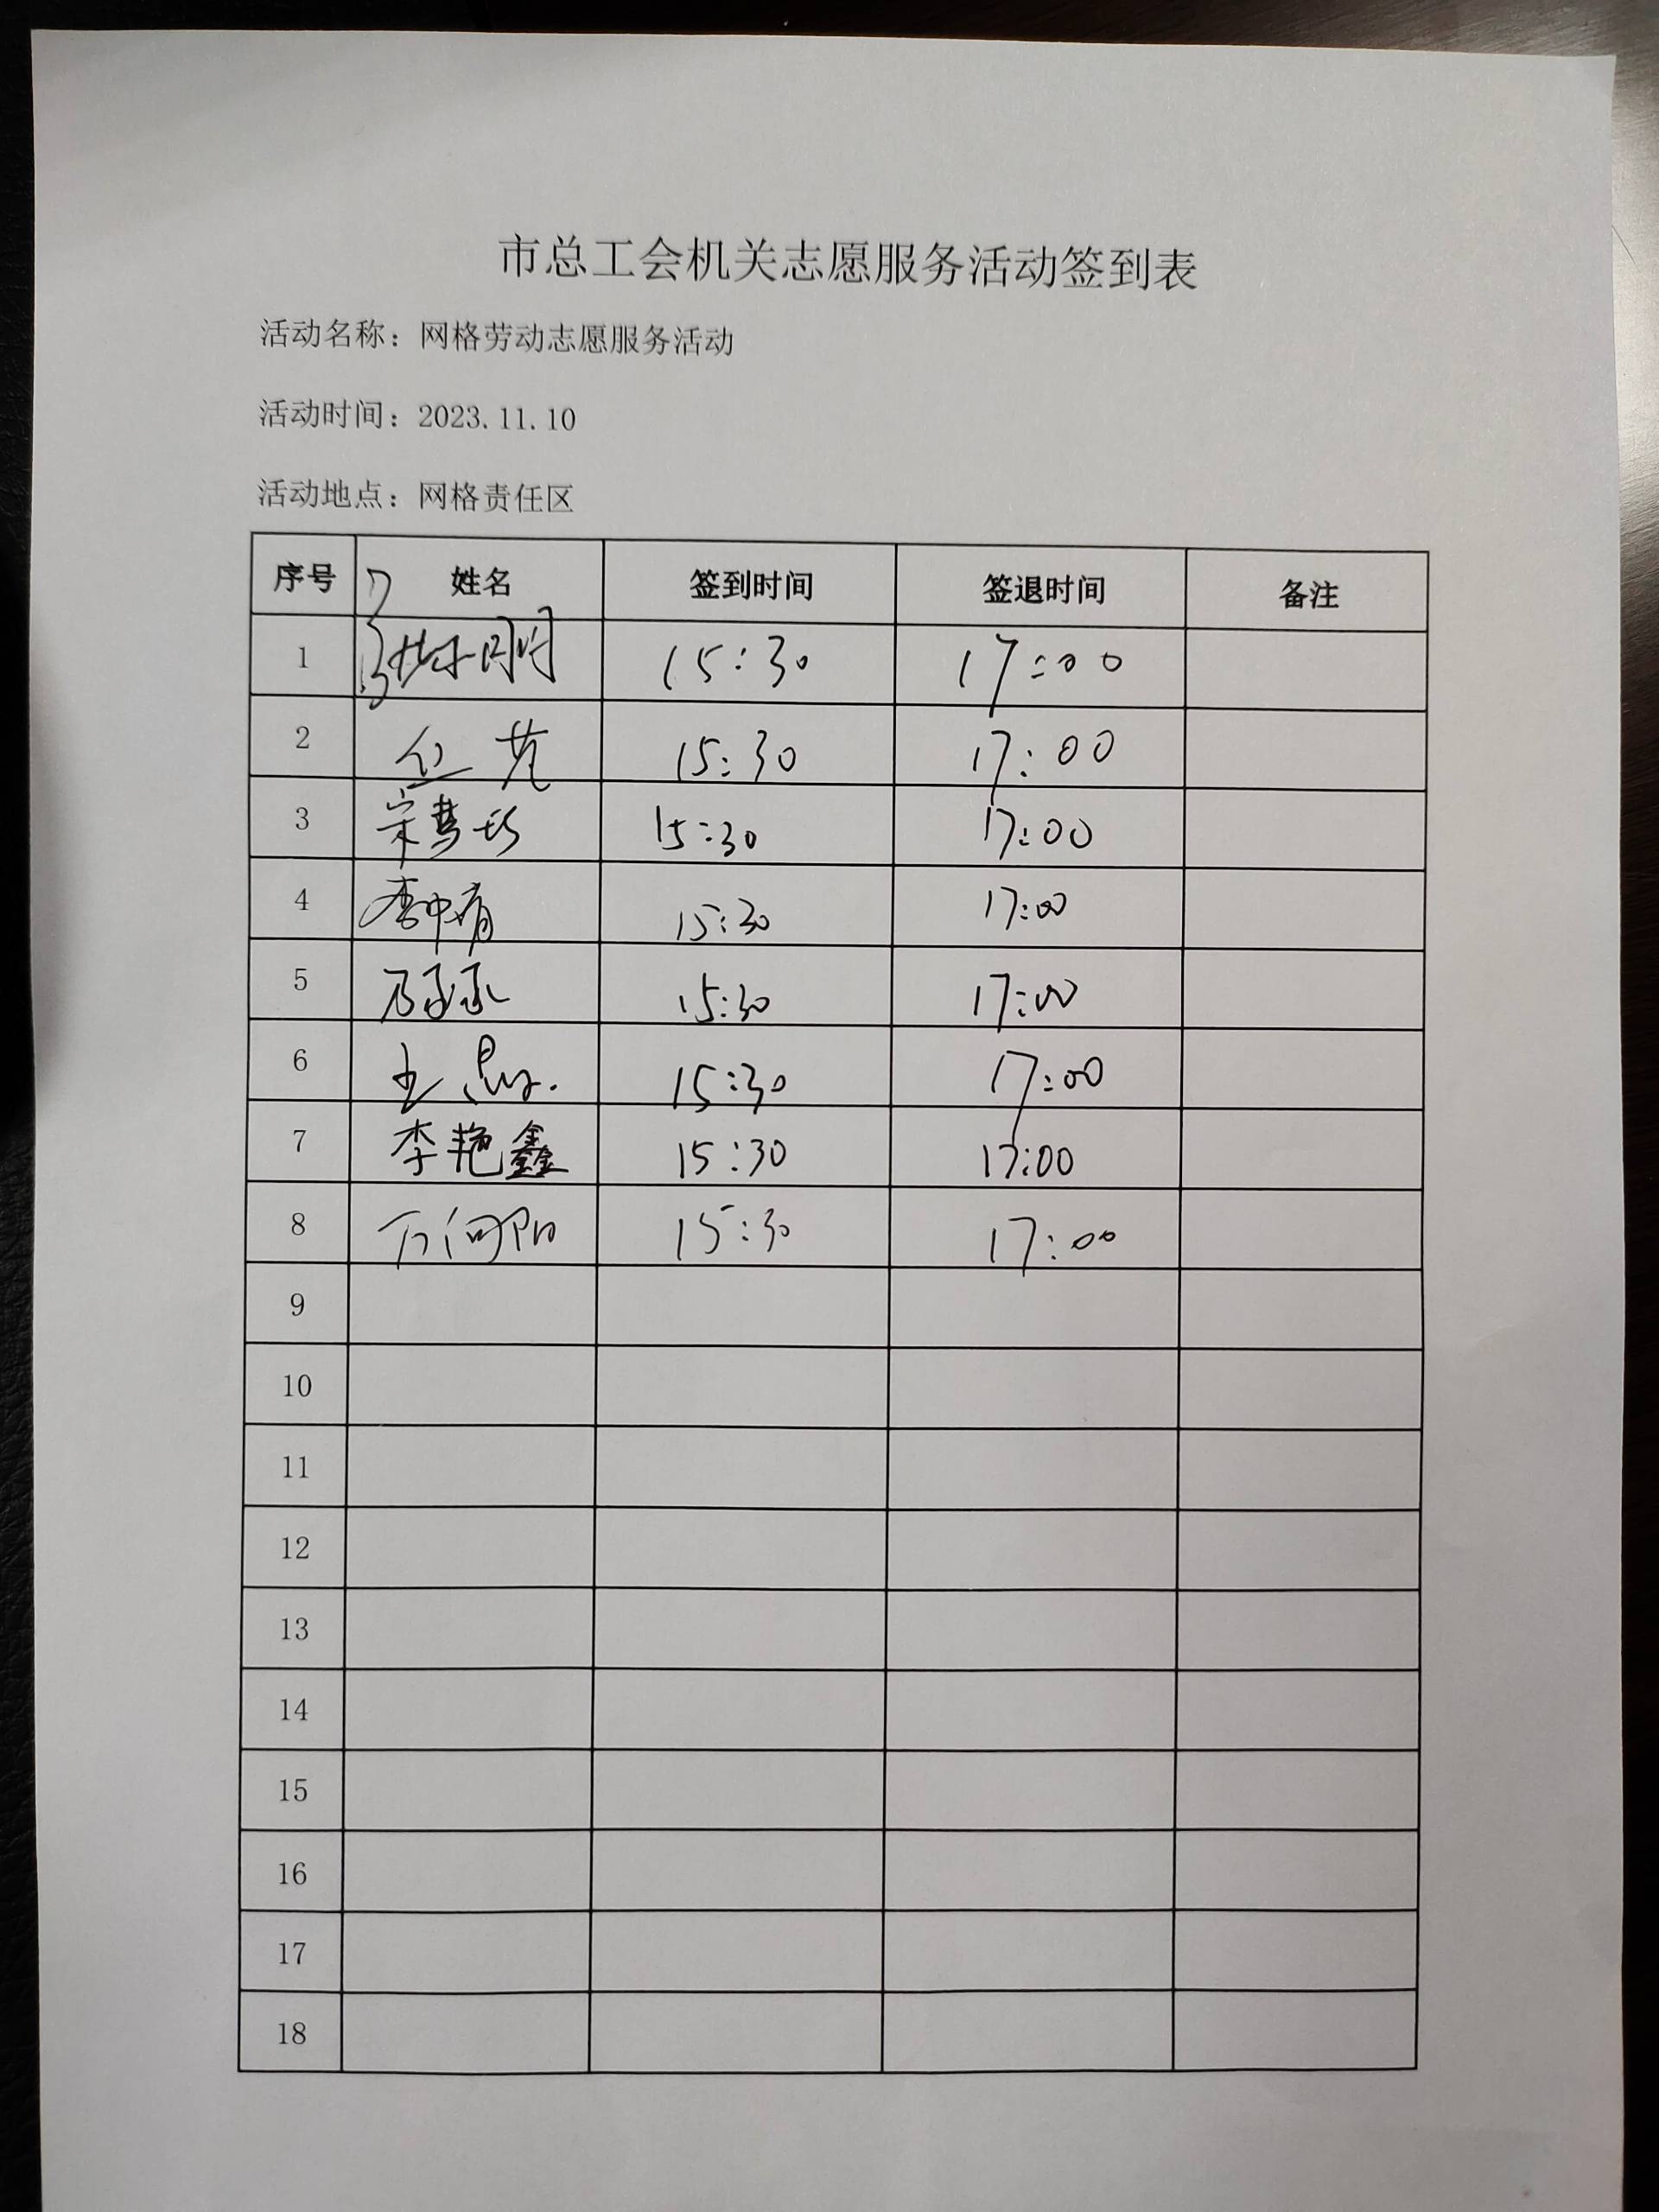 市总工会机关志愿服务活动签到表
活动名称：网格劳动志愿服务活动
活动时间：2023.11.10
活动地点：网格责任区
序号 姓名 签到时间 签退时间 备注
1 15:30 17:00
2 15:30 17:00
3 宋梦 15:30 17:00
4 李中 15:30 17:00
5 15:30 17:00
6 王思 15:30 17:00
7 李艳鑫 15:30 17:00
8 万向阳 15:30 17:00
9
10
11
12
13
14
15
16
17
18